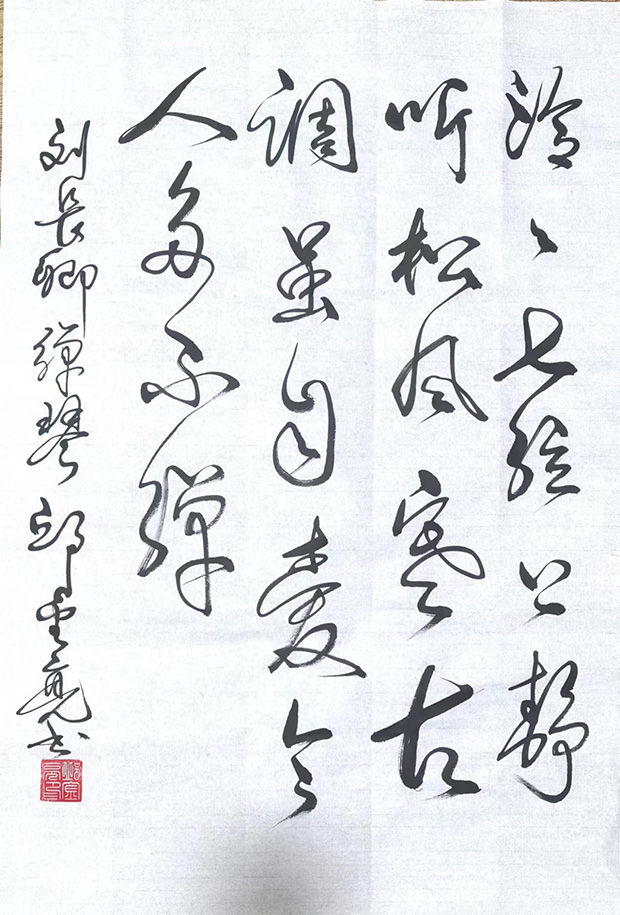 泠〻七弦上静
听松风寒古
调虽自爱今
人多不弹
刘長卿弹琴 邱亮书